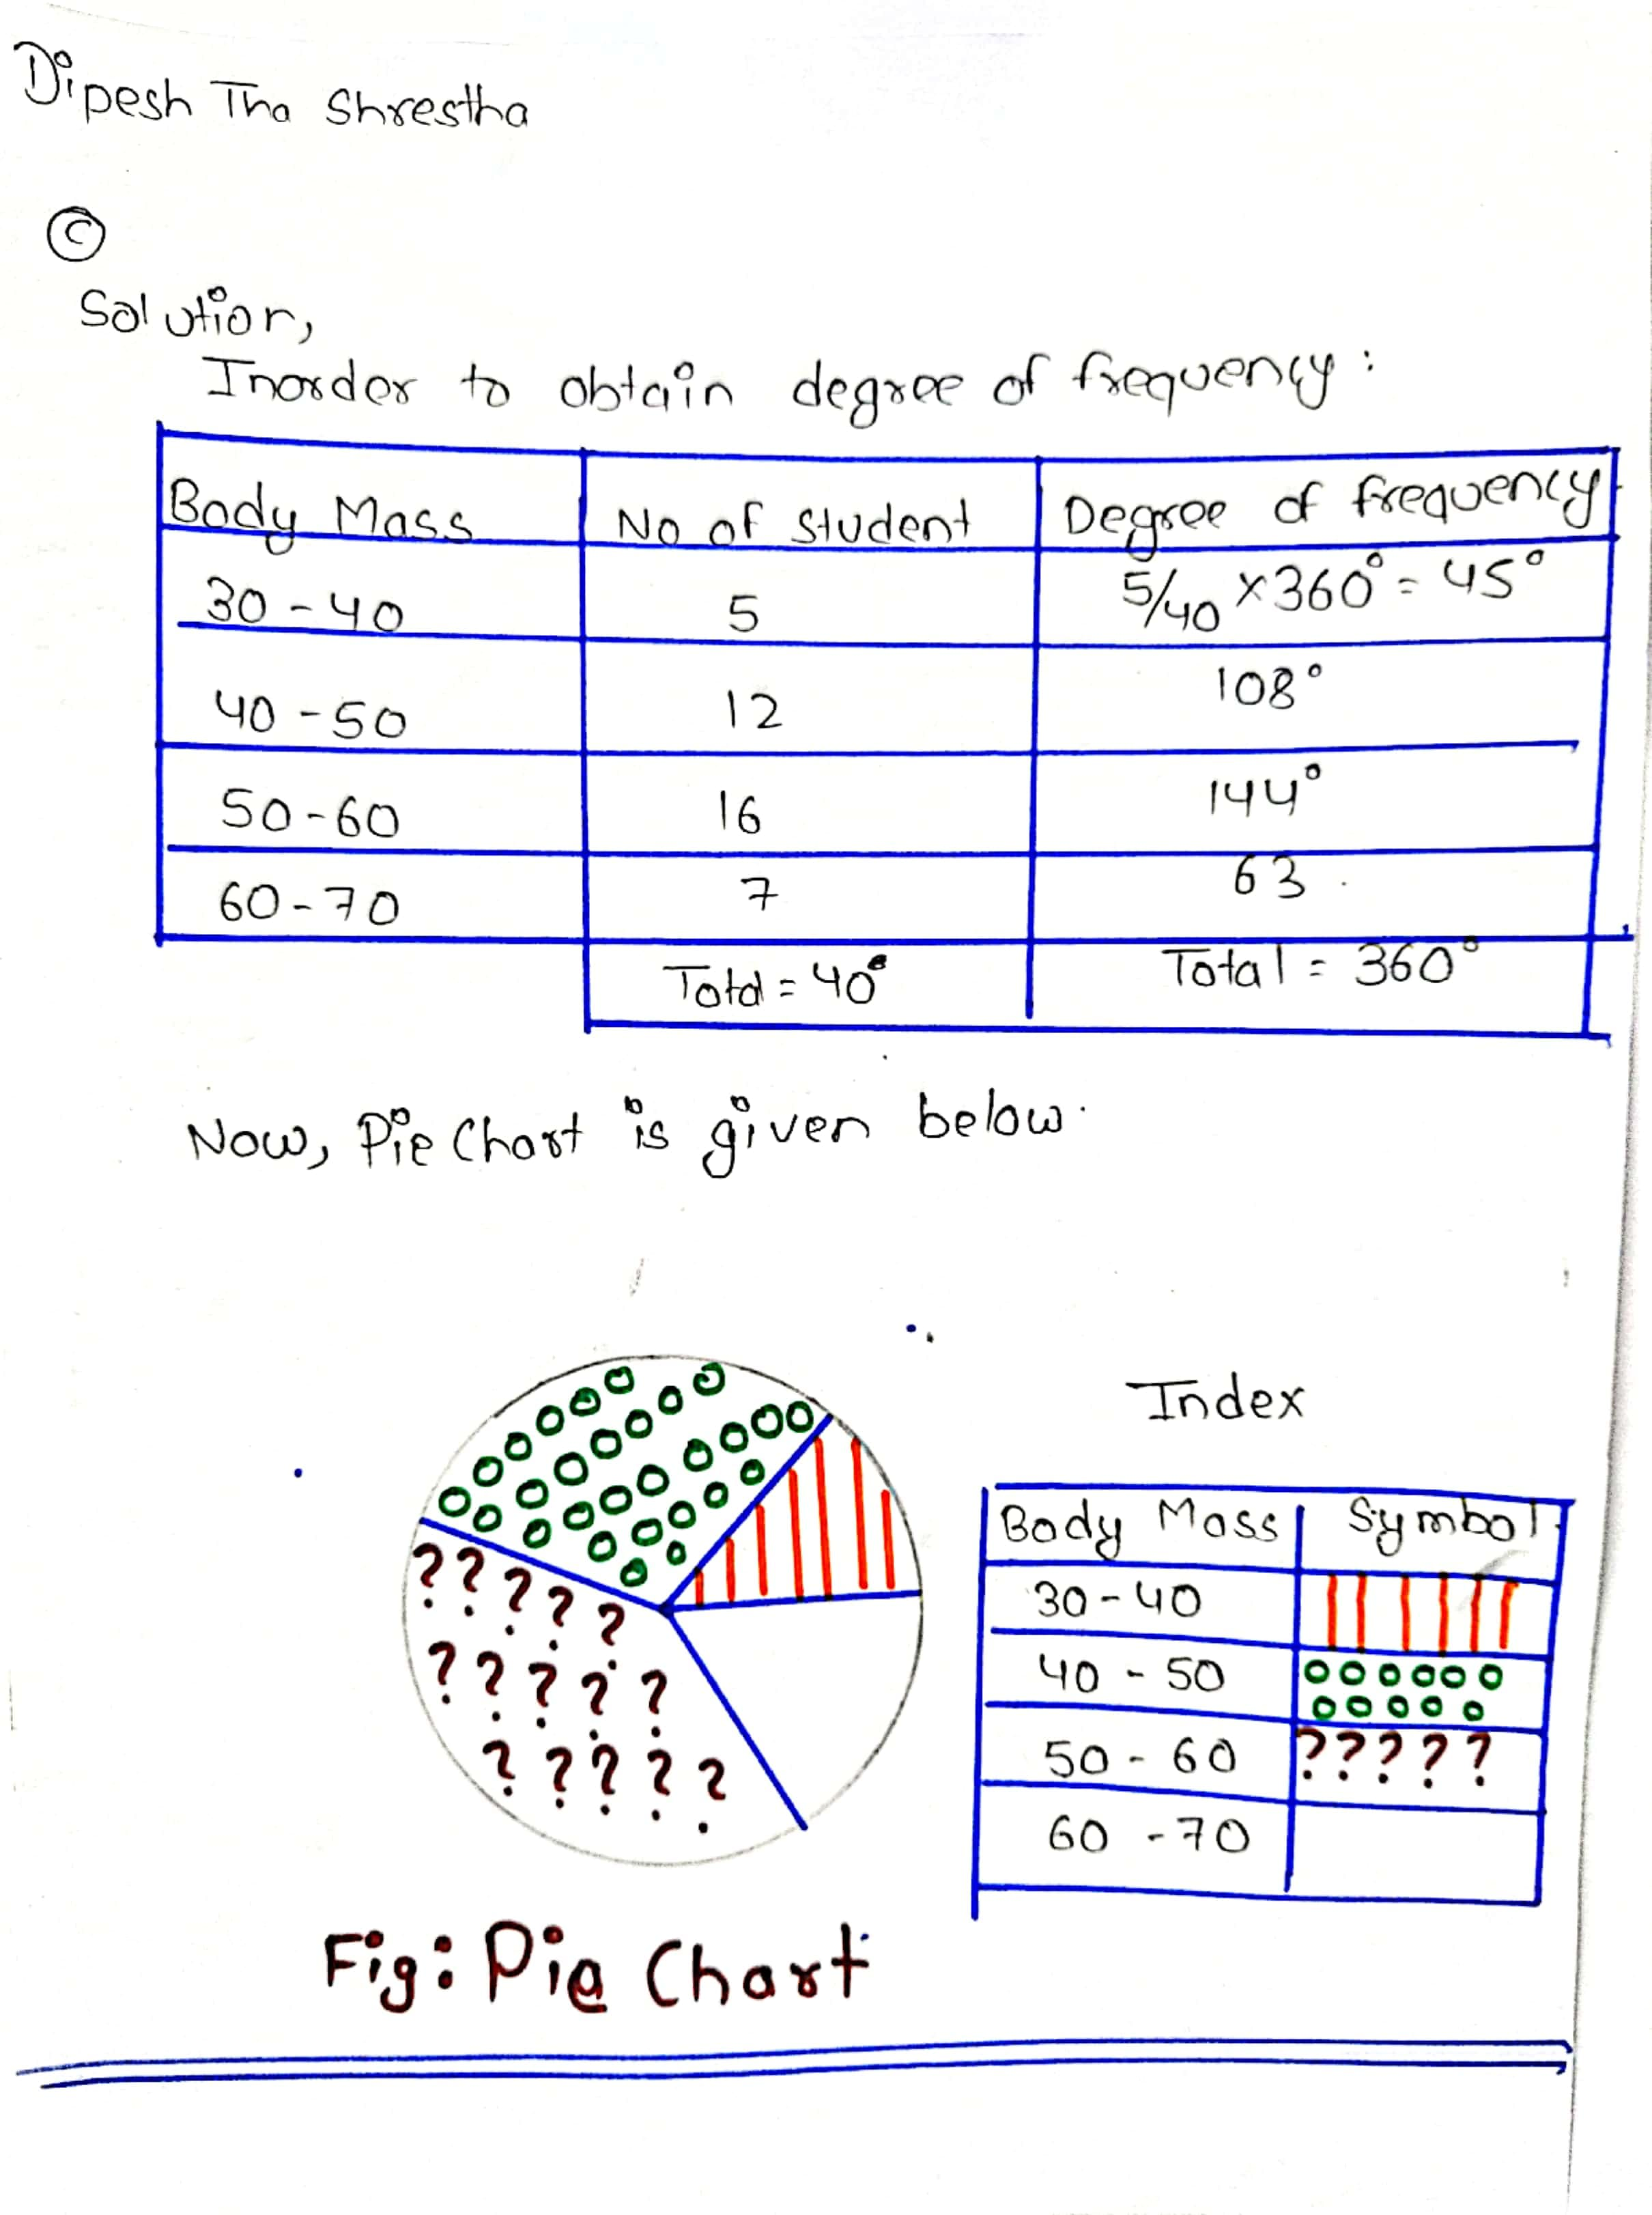 Dipesh Tha Shrestha
©
Solution,
Inorder to obtain degree of frequency:
Body Mass No of student Degree of frequency
30-40 5 5/40 ×360°= 45°
40-50 12 108°
50-60 16 144°
60-70 7 63
Total = 40° Total = 360°
Now, Pie Chart is given below.
Index
Body Mass Symbol
30-40
40-50
50-60 ?????
60-70
?????
?????
?????
Fig: Pie Chart